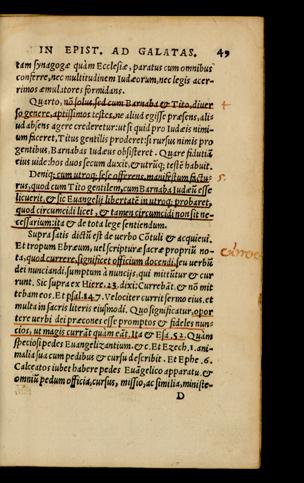 IN EPIST. AD GALATAS. 49
tam synagogæ quàm Ecclesiæ, paratus cum omnibus
conferre, nec multitudinem Iudæorum, nec legis acer-
rimos æmulatores formidans.
Quarto, nõ solus, sed cum Barnaba & Tito, diuer
so genere, aptissimos testes, ne aliud egisse præsens, ali-
ud absens agere crederetur: ut si quid pro Iudæis nimi-
um faceret, Titus gentilis proderet: si rursus nimis pro
gentibus, Barnabas Iudæus obsisteret. Quare fidutiã
eius uide: hos duos secum duxit, & utrũq; testẽ habuit.
Deniq; cum utroq; sese offerens, manifestum factu-
rus, quod cum Tito gentilem, cum Barnaba Iudæũ esse
licuerit, & sic Euangelij libertatẽ in utroq; probaret,
quod circumcidi licet, & tamen circumcidi non sit ne-
cessarium: ita & de tota lege sentiendum.
Supra satis dictũ est de uerbo Cõtuli & acquieui.
Et tropum Ebræum, uel scripturæ sacræ propriũ no-
ta, quod currere, significet officium docendi, seu uerbũ
dei nunciandi, sumptum à nuncijs, qui mittũtur & cur
runt. Sic supra ex Hiere. 23. dixi: Currebãt. & nõ mit
tebam eos. Et psal. 147. Velociter currit sermo eius. et
multa in sacris literis eiusmodi. Quo significatur, opor
tere uerbi dei præcones esse promptos & fideles nun-
cios, ut magis currãt quàm eãt. Ita & Esa. 52. Quàm
speciosi pedes Euangelizantium. &c. Et Ezech. 1. ani-
malia sua cum pedibus & cursu describit. Et Ephe. 6.
Calceatos iubet habere pedes Euãgelico apparatu. &
omniũ pedum officia, cursus, missio, ac similia, ministe-
D
4
5.